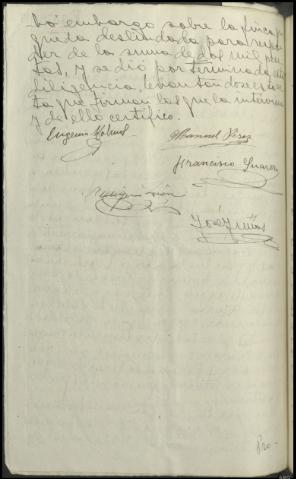 bó embargo sobre la finca
deslindada para respon
der de la suma de dos mil pese
tas, y se dió por terminada esta
diligencia, levantándose esta ac
ta que firman los que la intervienen
y de ello certifico.
Eugenio
Manuel Pérez
Francisco Suarez
José
Pro-